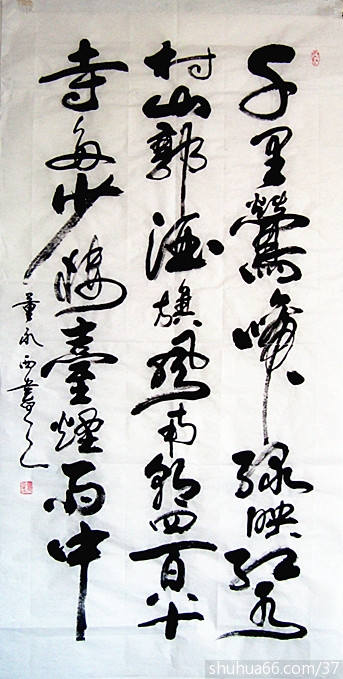 千里鶯啼緑映红水
村山郭酒旗風南朝四百八十
寺多少樓臺煙雨中
永西書
shuhua66.com/37